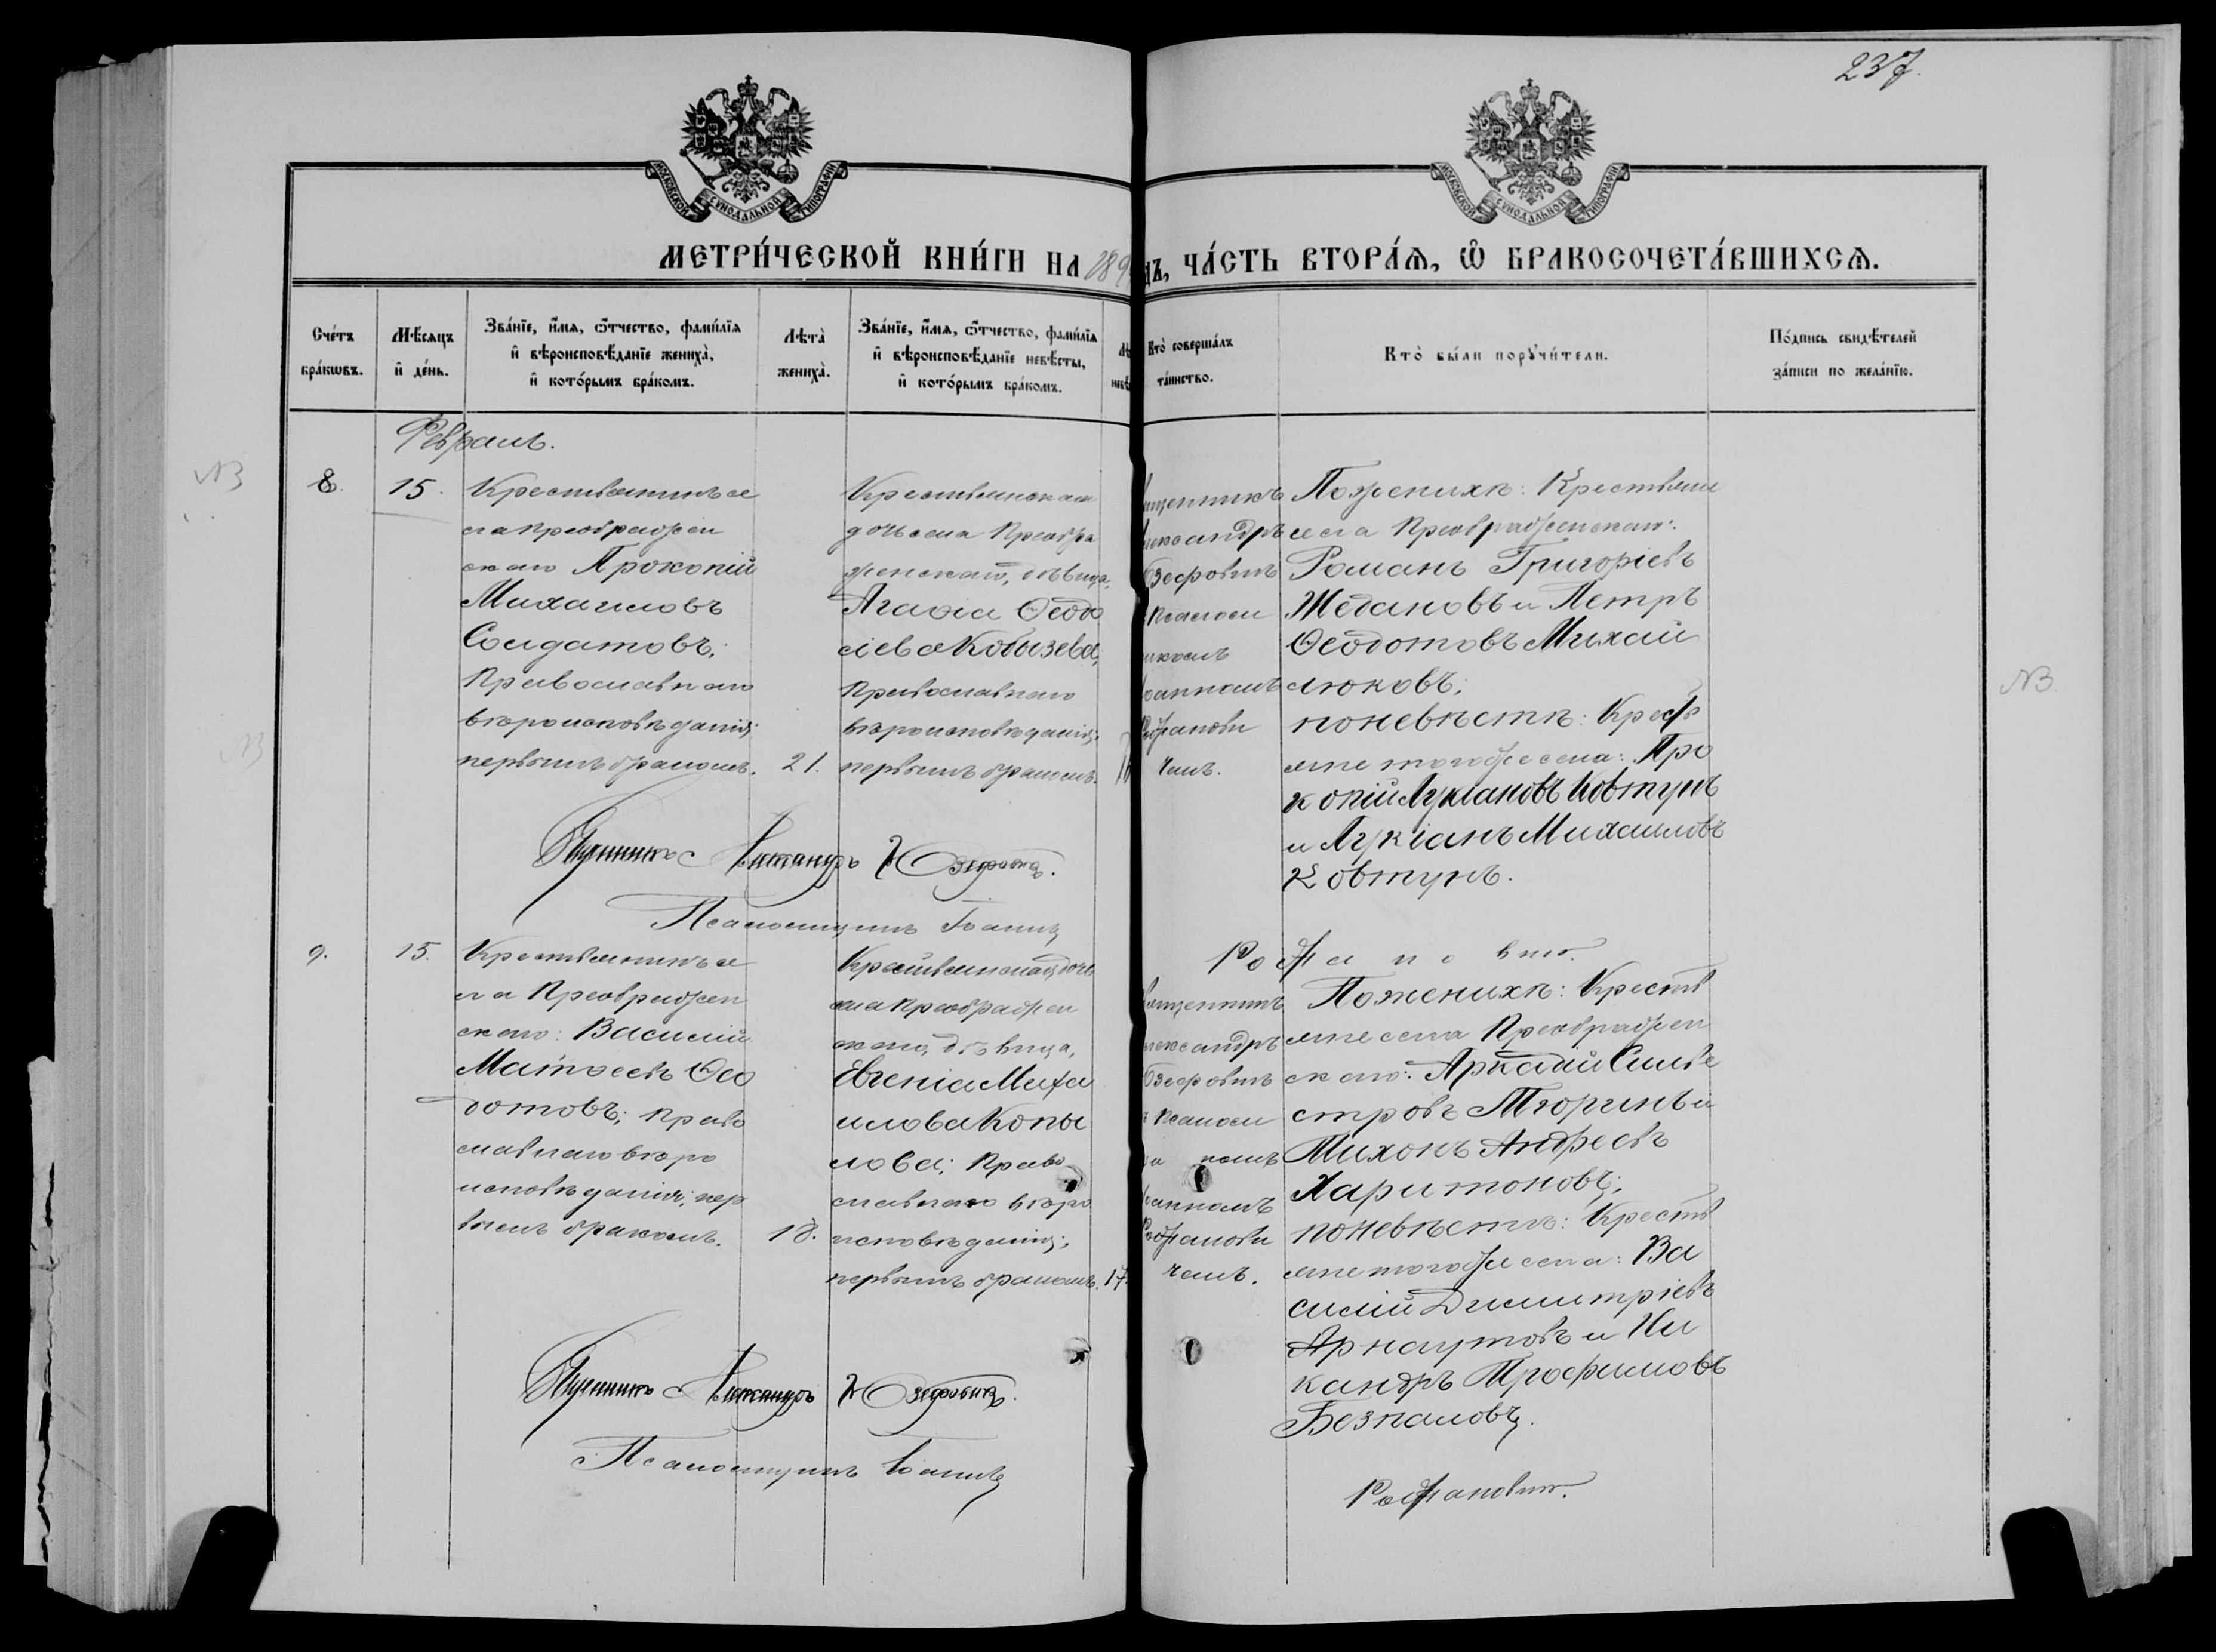 237.
МОСКОВСКОЙ СѴНОДАЛЬНОЙ ТИПОГРАФІИ
МОСКОВСКОЙ СѴНОДАЛЬНОЙ ТИПОГРАФІИ
МЕТРИ́ЧЕСКОЙ КНИ́ГИ НА 189
ДЪ, ЧА́СТЬ ВТОРА́Ѧ, Ѿ БРАКОСОЧЕТА́ВШИХСѦ.
Сче́тъ
бра́кѡвъ.
Мѣсѧцъ
и҆ де́нь.
Зва́нїе, и҆́мѧ, ѻ҆́тчество, фами́лїѧ
и҆ вѣроисповѣ́данїе жениха̀,
и҆ кото́рымъ бра́комъ.
Лѣта̀
жениха̀.
Зва́нїе, и҆́мѧ, ѻ҆́тчество, фами́лїѧ
и҆ вѣроисповѣ́данїе невѣ́сты,
и҆ кото́рымъ бра́комъ.
Кто̀ соверша́лъ
та́инство.
Кто̀ бы́ли порꙋчи́тели.
По́дпись свидѣ́телей
за́писи по жела́нїю.
Февраль.
NB
8.
15.
Крестьянинъ се
ла Преображен
скаго Прокопій
Михаиловъ
Солдатовъ,
Православнаго
вѣроисповѣданія;
первымъ бракомъ.
21.
Крестьянская
дочь села Преобра
женскаго, дѣвица,
Агаѳіа Ѳеодо
сіева Кобызева,
Православнаго
вѣроисповѣданія,
первымъ бракомъ.
ященникъ
лександръ
Озеровичъ
Псалом
икомъ
оанномъ
Рожанови
чемъ.
По женихѣ: Крестьяне
села Преображенскаго:
Романъ Григоріевъ
Ждановъ и Петръ
Ѳеодотовъ Михай
люковъ;
по невѣстѣ: Кресть
яне тогоже села: Про
копій Лукіановъ Ковтунъ
и Лукіанъ Михаиловъ
Ковтунъ.
NB
NB
Священникъ Александръ
Псаломщикъ Іоаннъ
Рожановичъ.
9.
15.
Крестьянинъ се
ла Преображен
скаго: Василій
Матѳеевъ Ѳео
дотовъ; право
славнаго вѣро
исповѣданія; пер
вымъ бракомъ.
18.
Крестьянская дочь
села Преображен
скаго, дѣвица,
Евгенія Миха
илова Копы
лова; Право
славнаго вѣро
исповѣданія;
первымъ бракомъ.
17.
ященникъ
лександръ
Озеровичъ
Псалом
комъ
оанномъ
Рожанови
чемъ.
По женихѣ: Кресть
яне села Преображен
скаго: Аркадій Сильве
стровъ Тюринъ и
Тихонъ Андреевъ
Харитоновъ;
по невѣстѣ: Кресть
яне тогоже села: Ва
силій Димитріевъ
Арнаутовъ и Ни
кандръ Трофимовъ
Безпаловъ.
Священникъ Александръ
Псаломщикъ Іоаннъ
Рожановичъ.